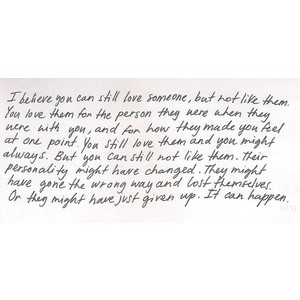 I believe you can still love someone, but not like them.
You love them for the person they were when they
were with you, and for how they made you feel
at one point. You still love them and you might
always. But you can still not like them. Their
personality might have changed. They might
have gone the wrong way and lost themselves.
Or they might have just given up. It can happen.